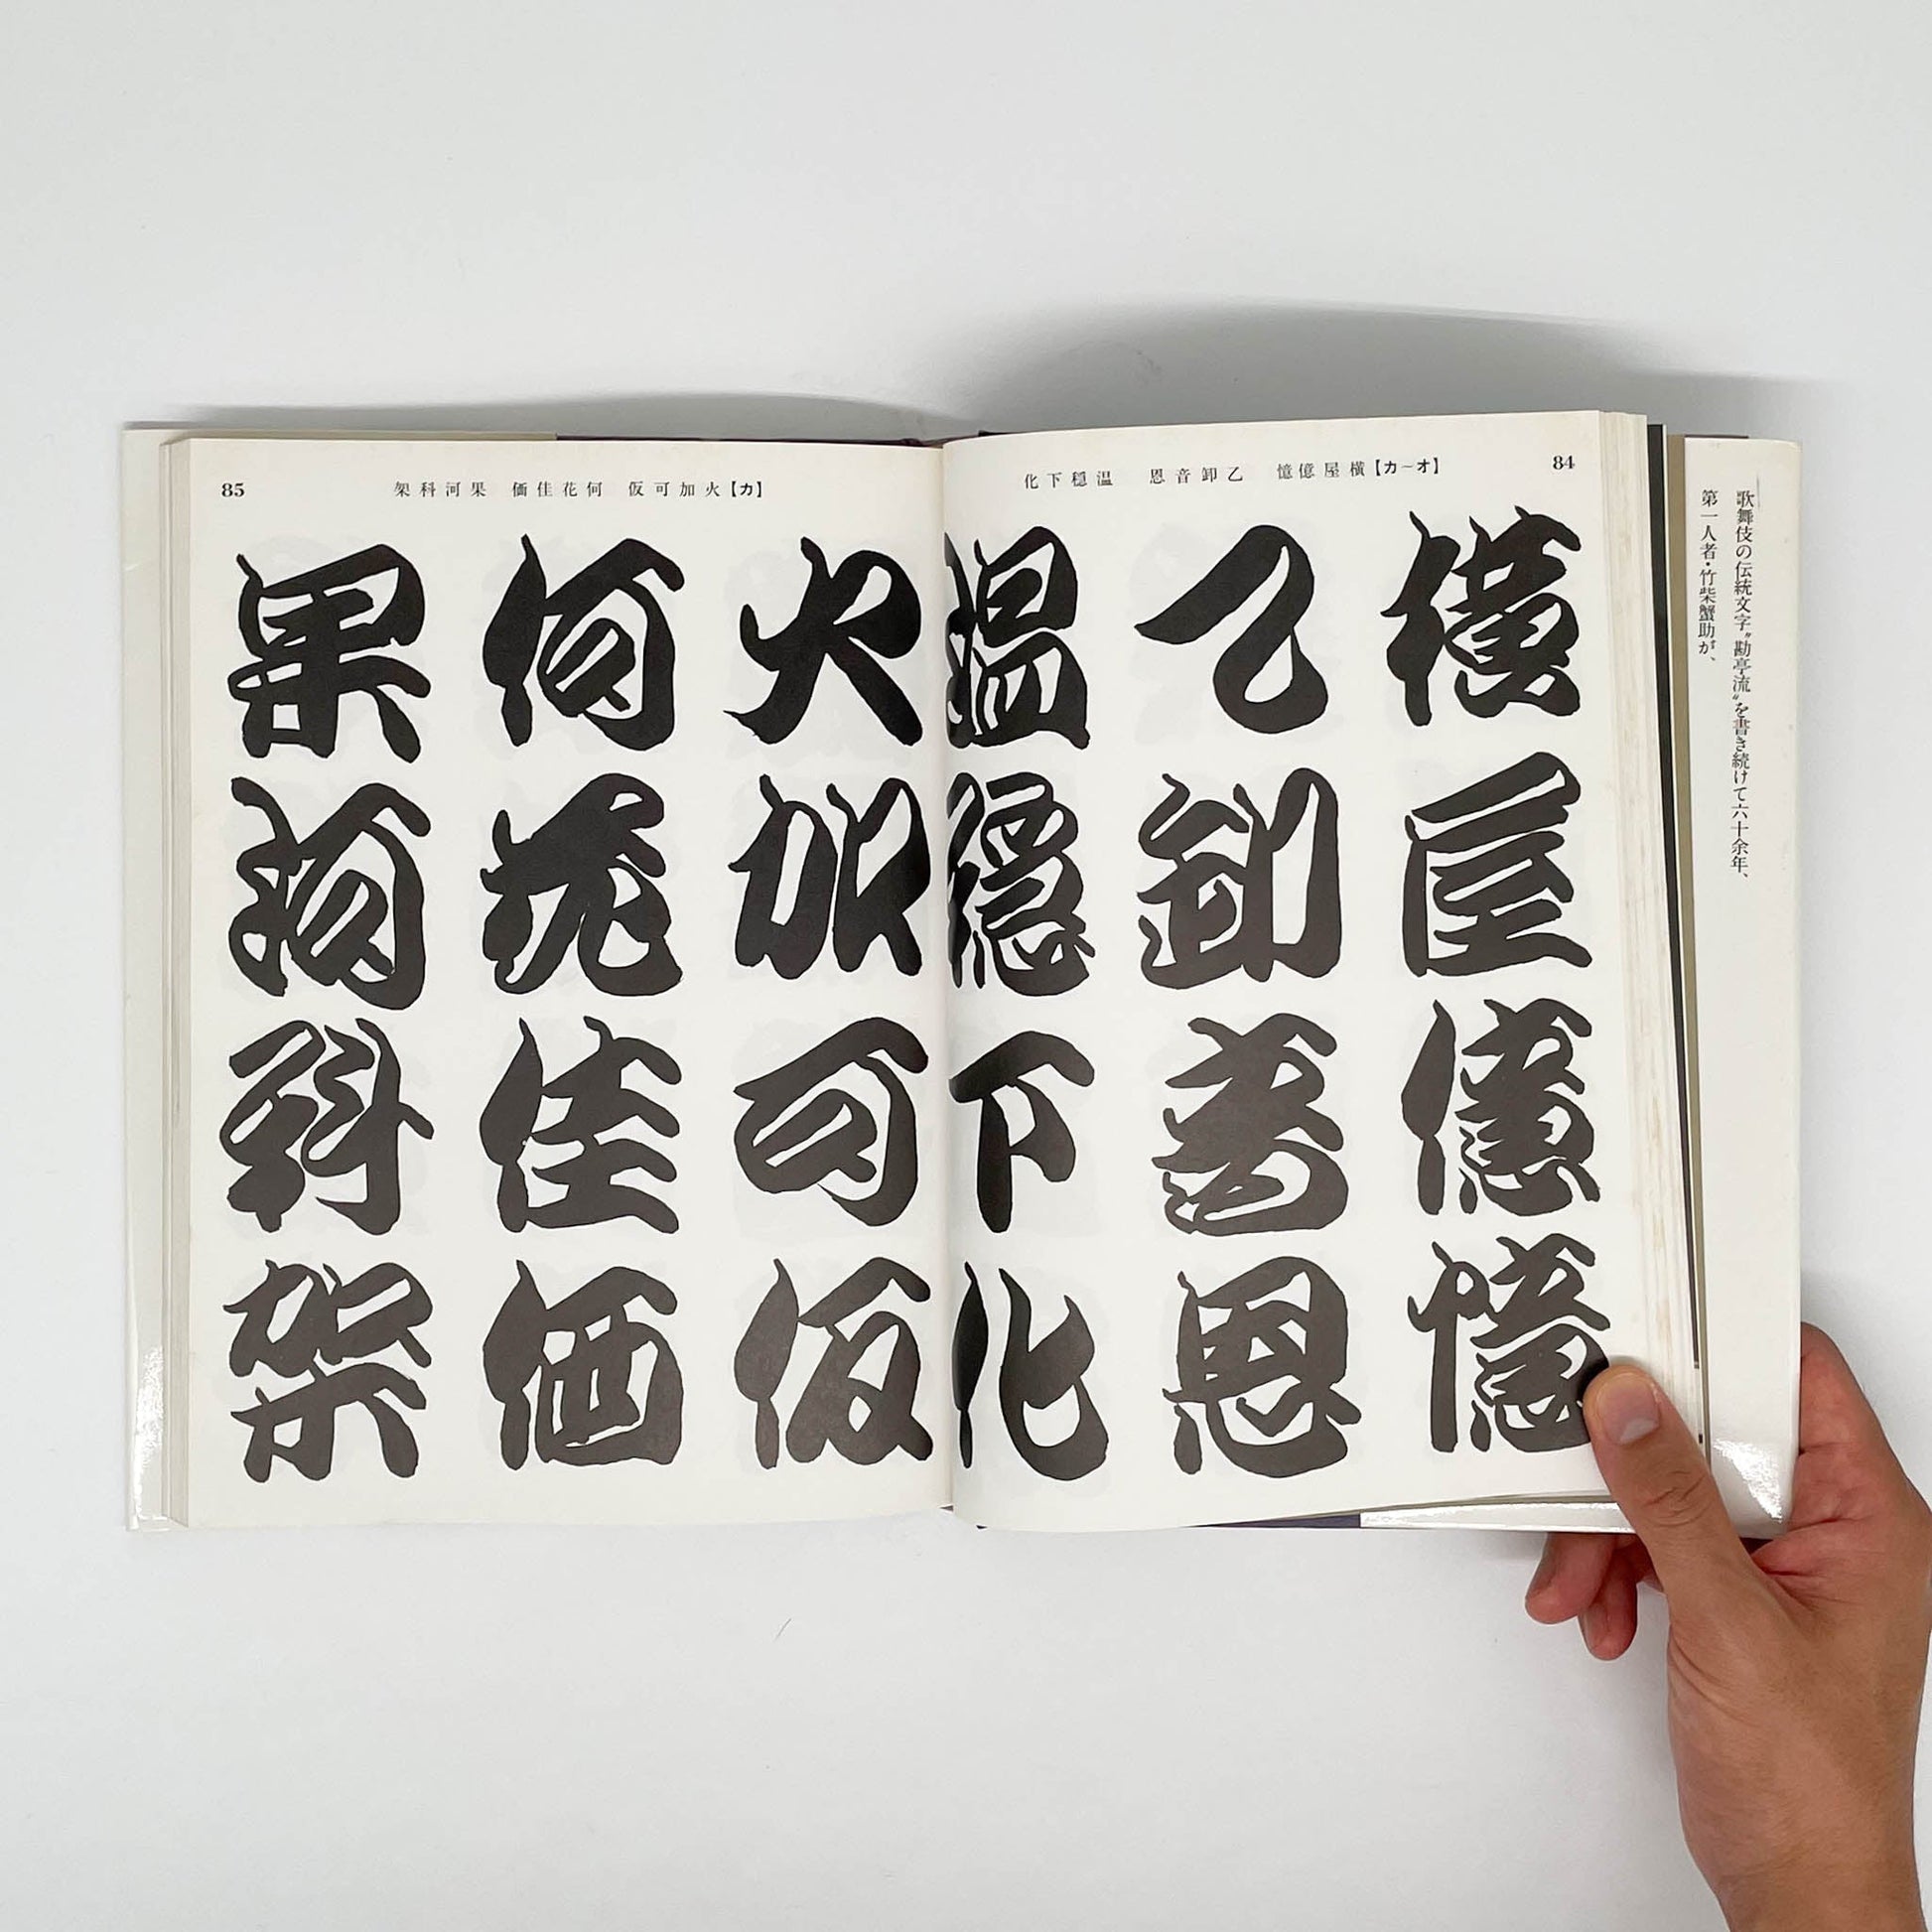 歌舞伎の伝統文字〝勘亭流〟を書き続けて六十余年、
第一人者・竹柴蟹助が、
84
【オ〜カ】横屋億憶　乙卸音恩　温穏下化
横屋億憶
乙卸音恩
温穏下化
【カ】火加可仮　何花佳価　果河科架
85
火加可仮
何花佳価
果河科架